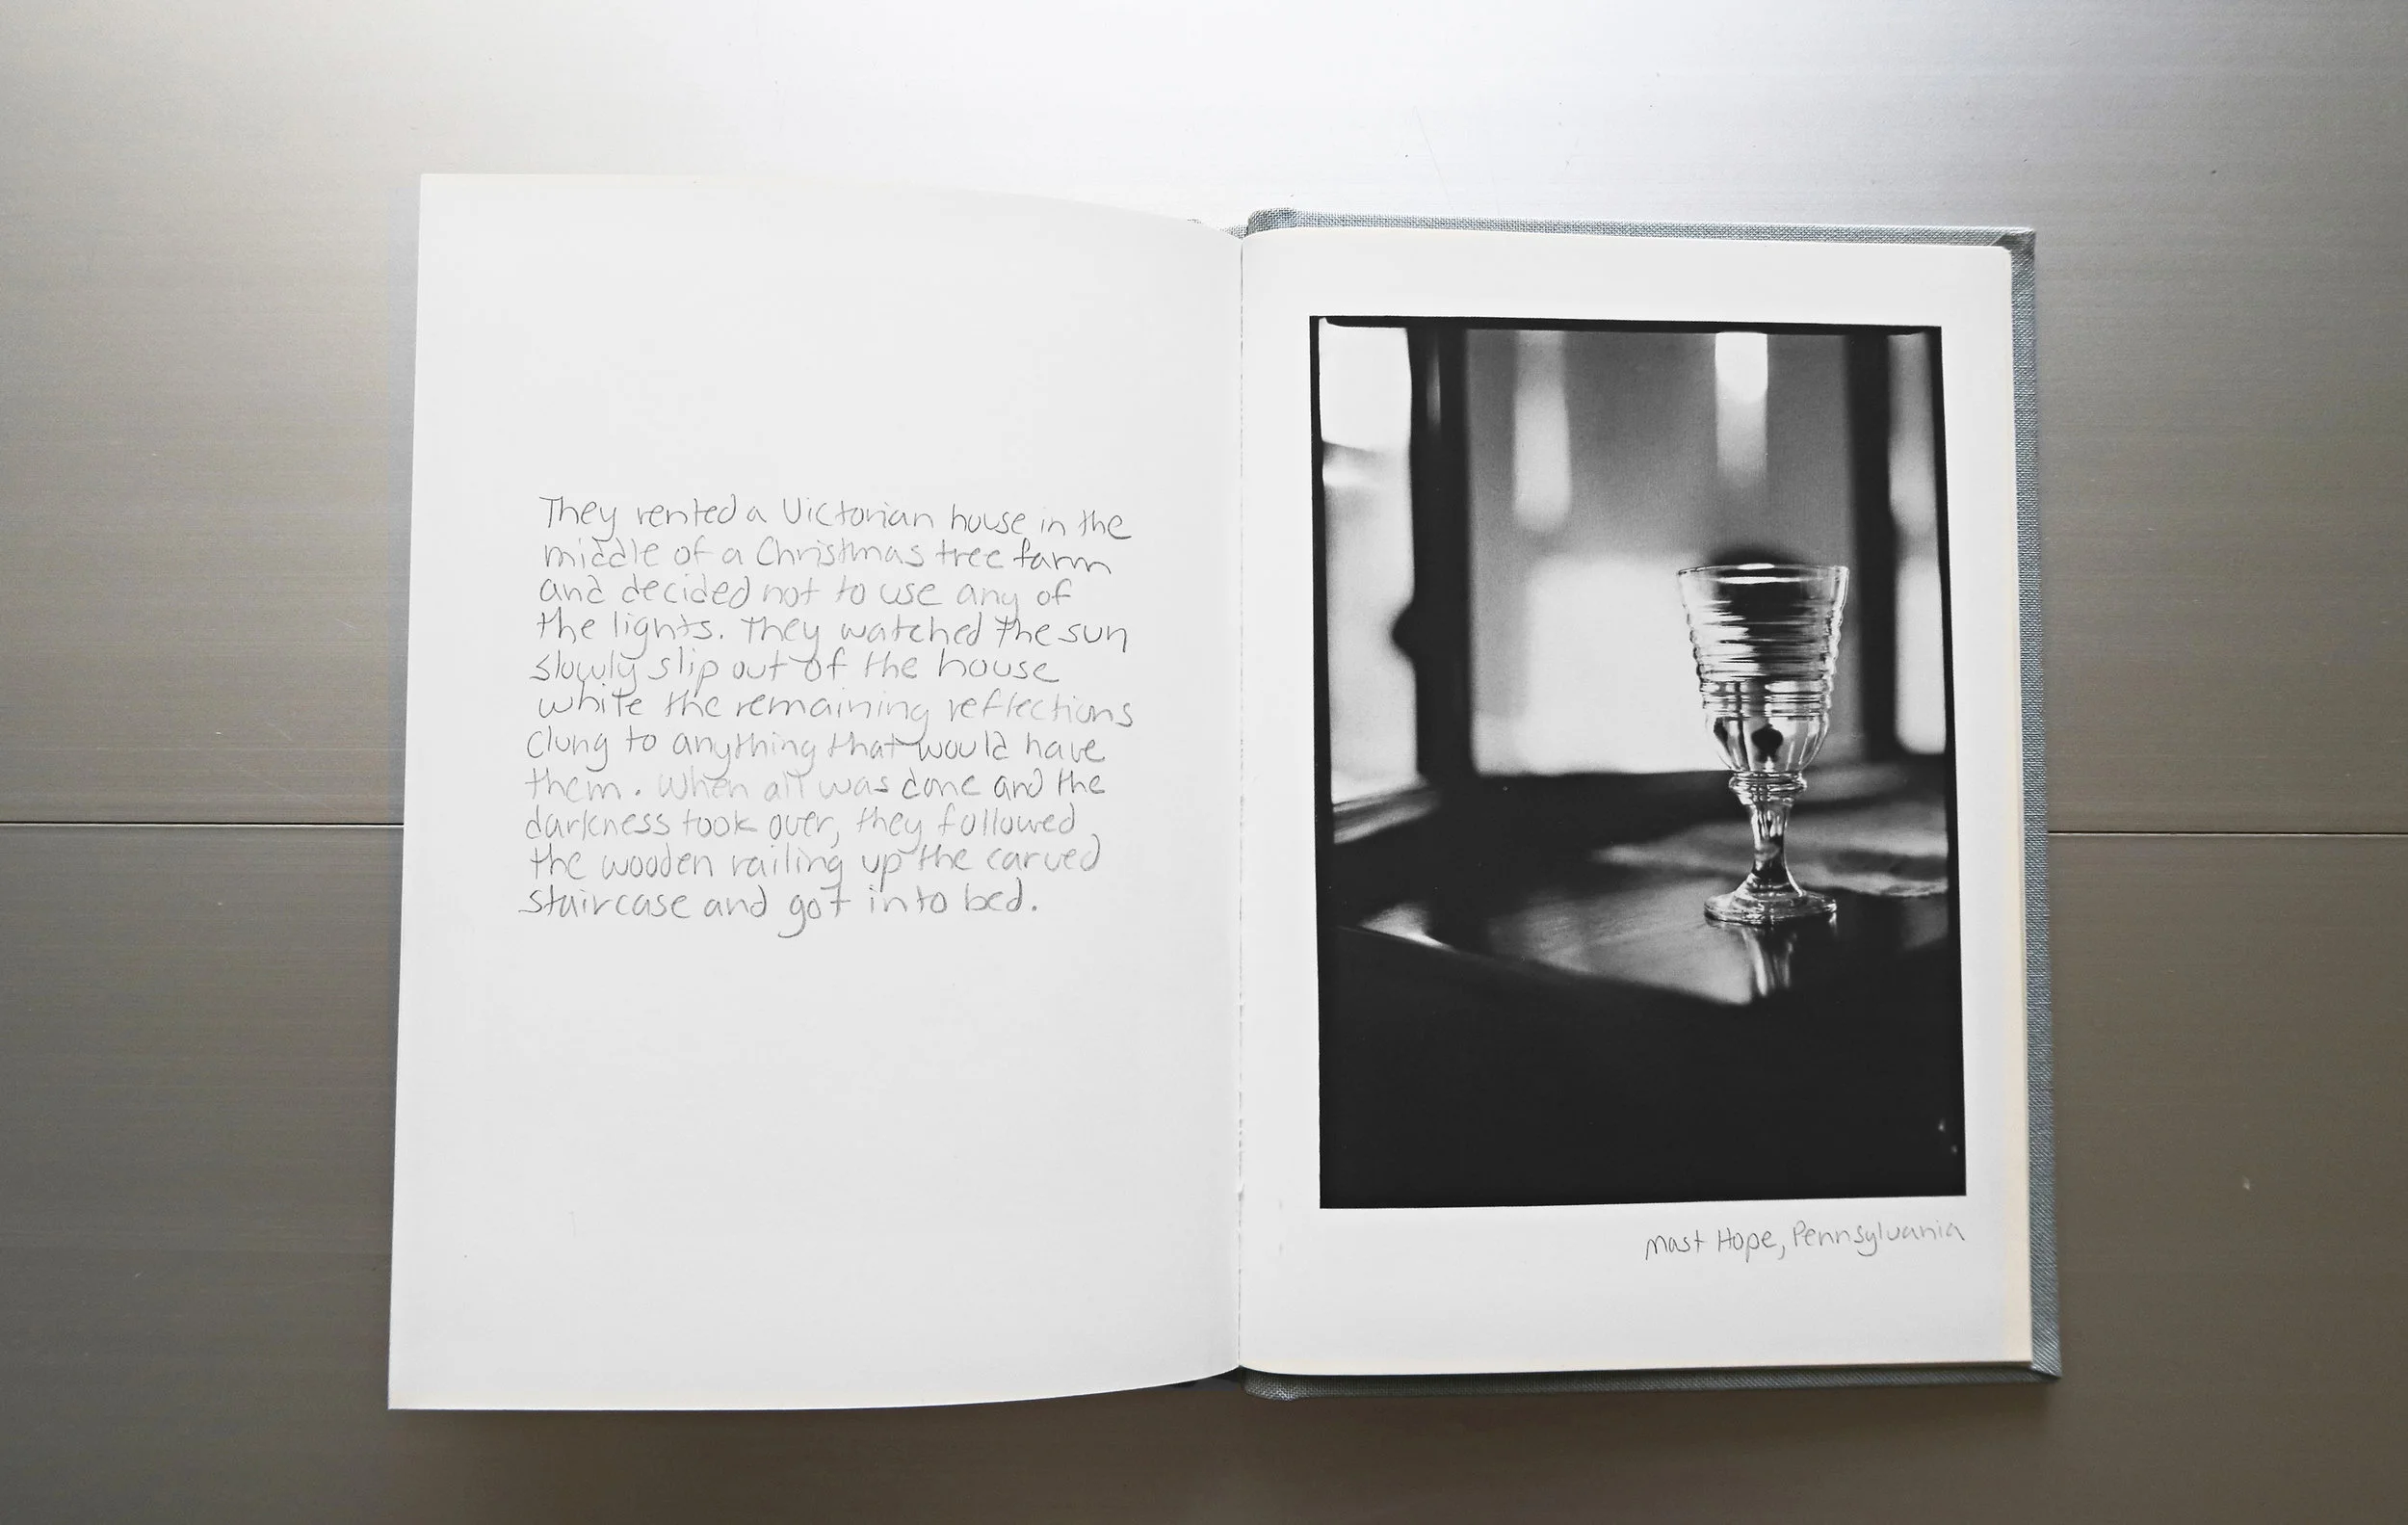 They rented a Victorian house in the
middle of a Christmas tree farm
and decided not to use any of
the lights. They watched the sun
slowly slip out of the house
while the remaining reflections
clung to anything that would have
them. When all was done and the
darkness took over, they followed
the wooden railing up the carved
staircase and got into bed.
Mast Hope, Pennsylvania